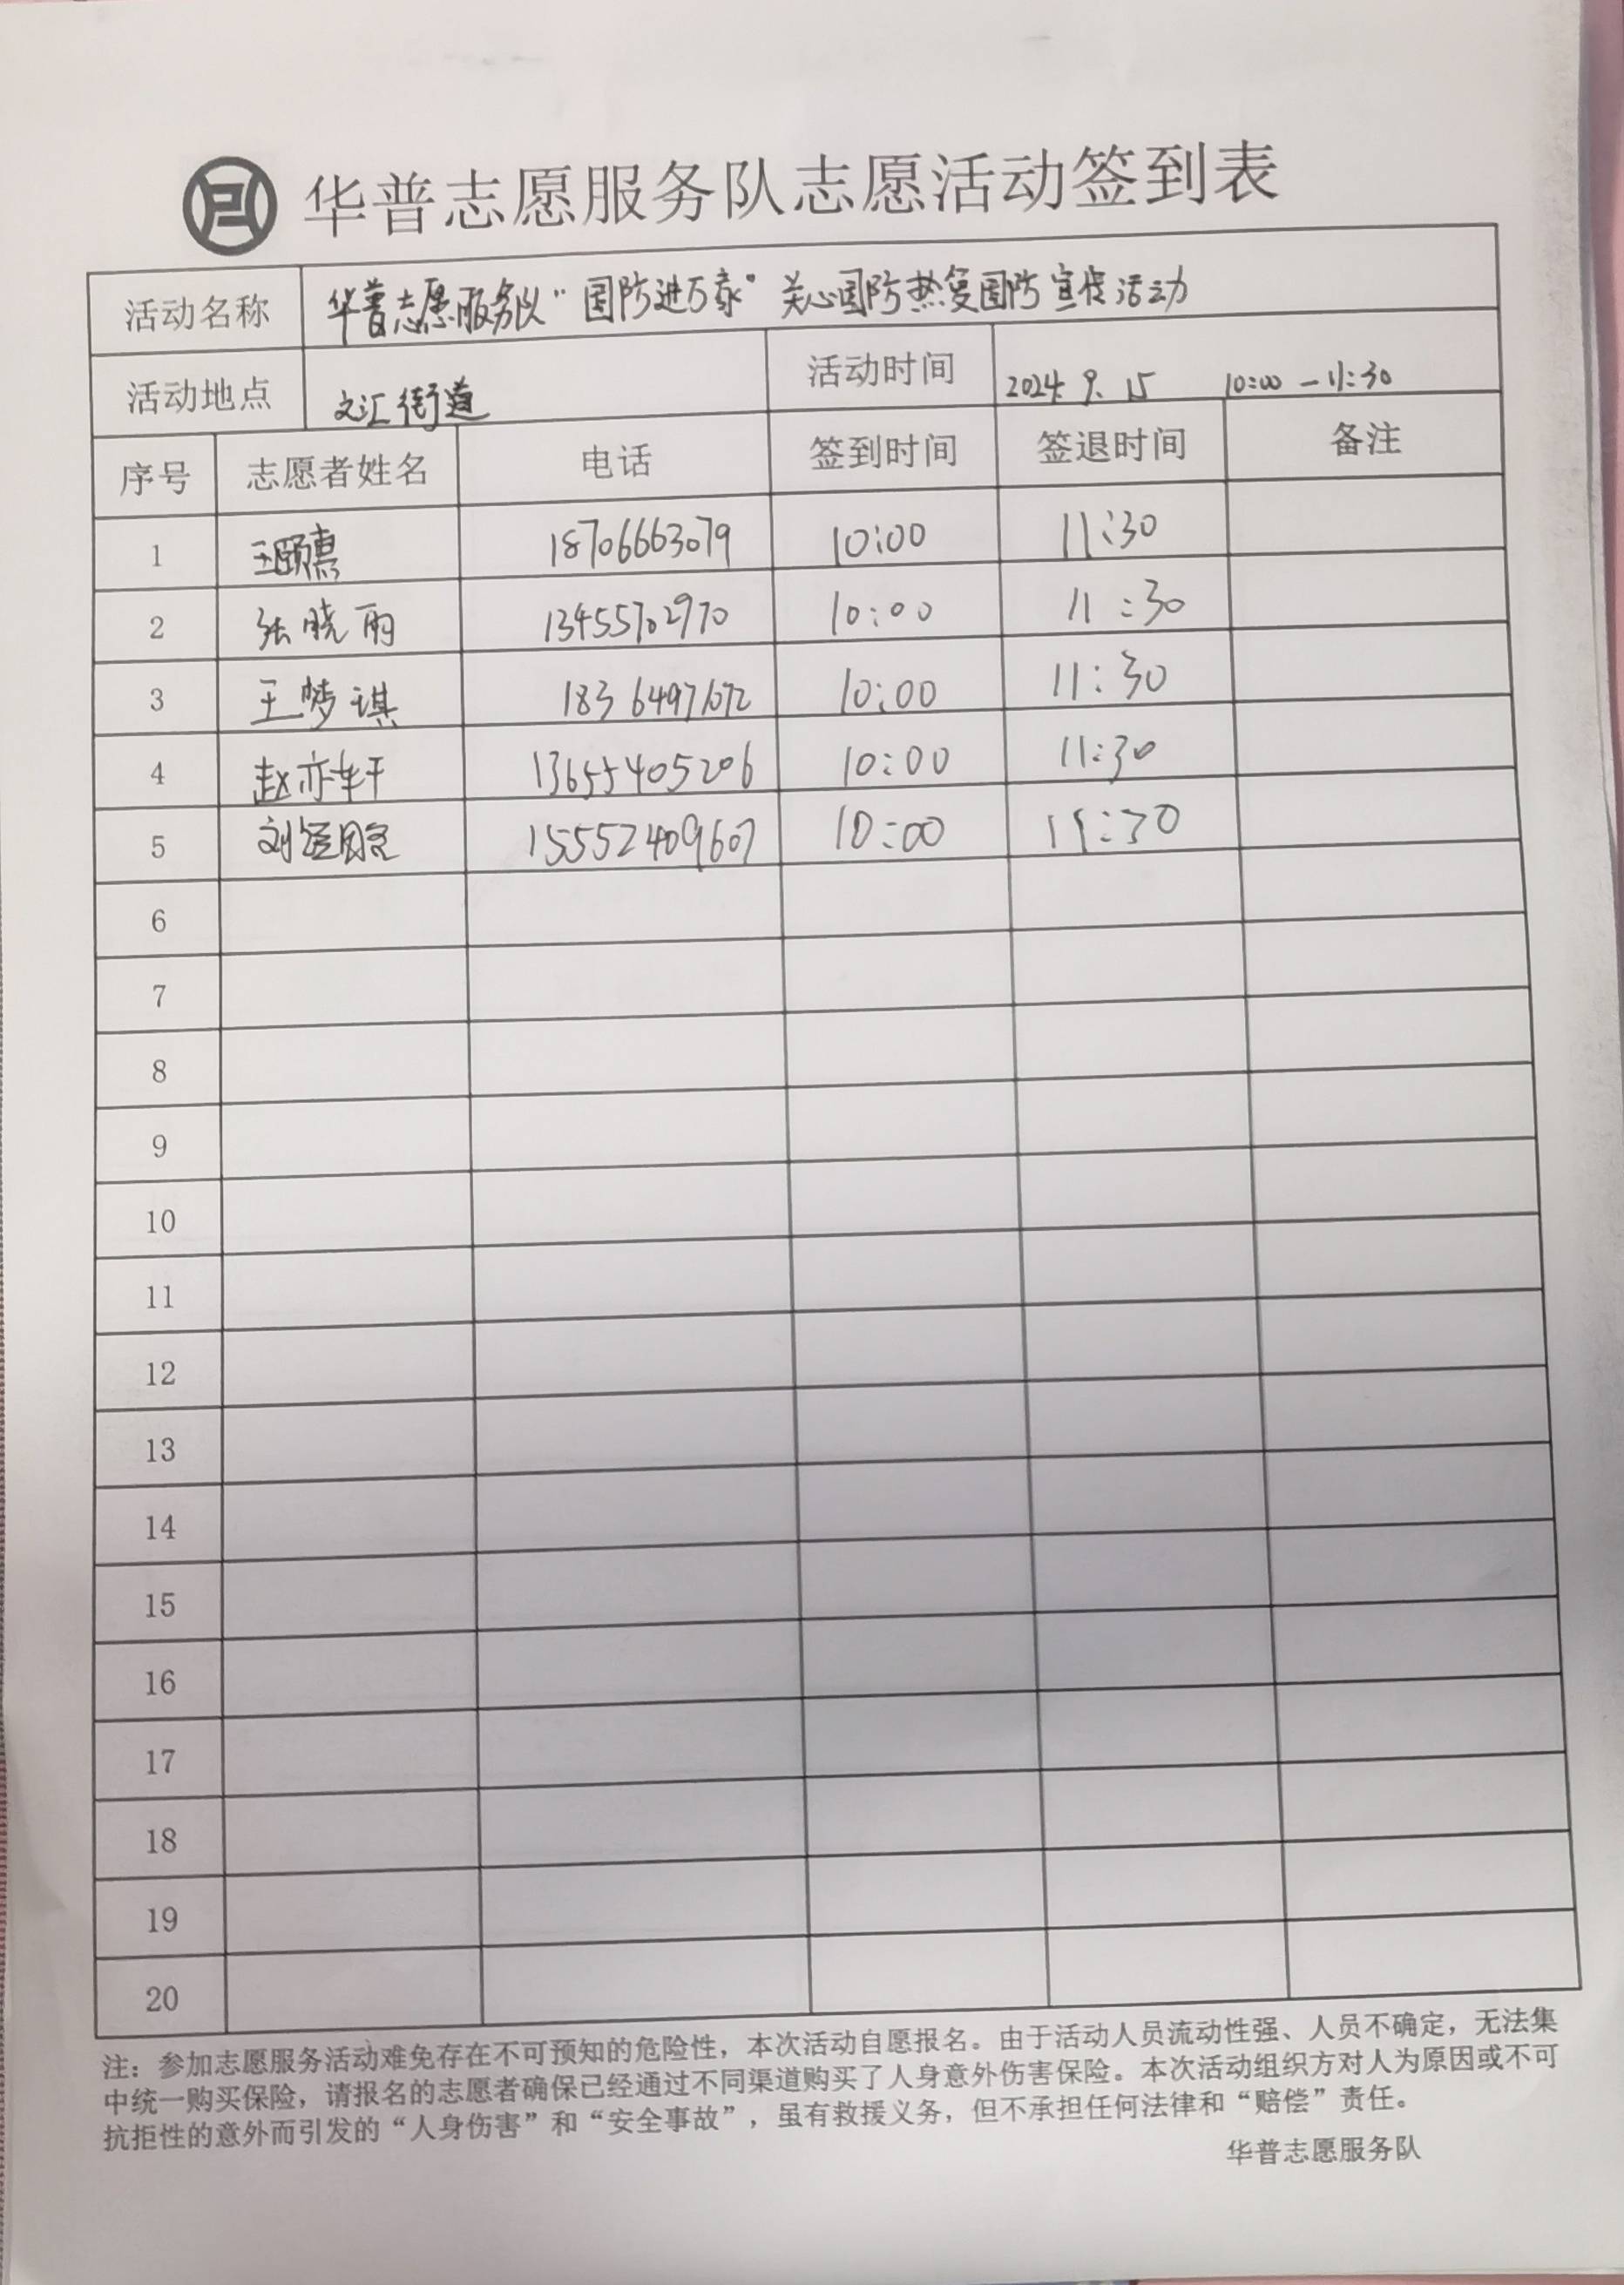 华普志愿服务队志愿活动签到表
活动名称 华普志愿服务队“国防进万家”关心国防热爱国防宣传活动
活动地点 文汇街道 活动时间 2024.9.15 10:00-11:30
序号 志愿者姓名 电话 签到时间 签退时间 备注
1 王颐惠 18706663079 10:00 11:30
2 张晓雨 13455702970 10:00 11:30
3 王梦琪 18364971072 10:00 11:30
4 赵亦轩 13655405206 10:00 11:30
5 刘 15552409607 10:00 11:30
6
7
8
9
10
11
12
13
14
15
16
17
18
19
20
注：参加志愿服务活动难免存在不可预知的危险性，本次活动自愿报名。由于活动人员流动性强、人员不确定，无法集
中统一购买保险，请报名的志愿者确保已经通过不同渠道购买了人身意外伤害保险。本次活动组织方对人为原因或不可
抗拒性的意外而引发的“人身伤害”和“安全事故”，虽有救援义务，但不承担任何法律和“赔偿”责任。
华普志愿服务队